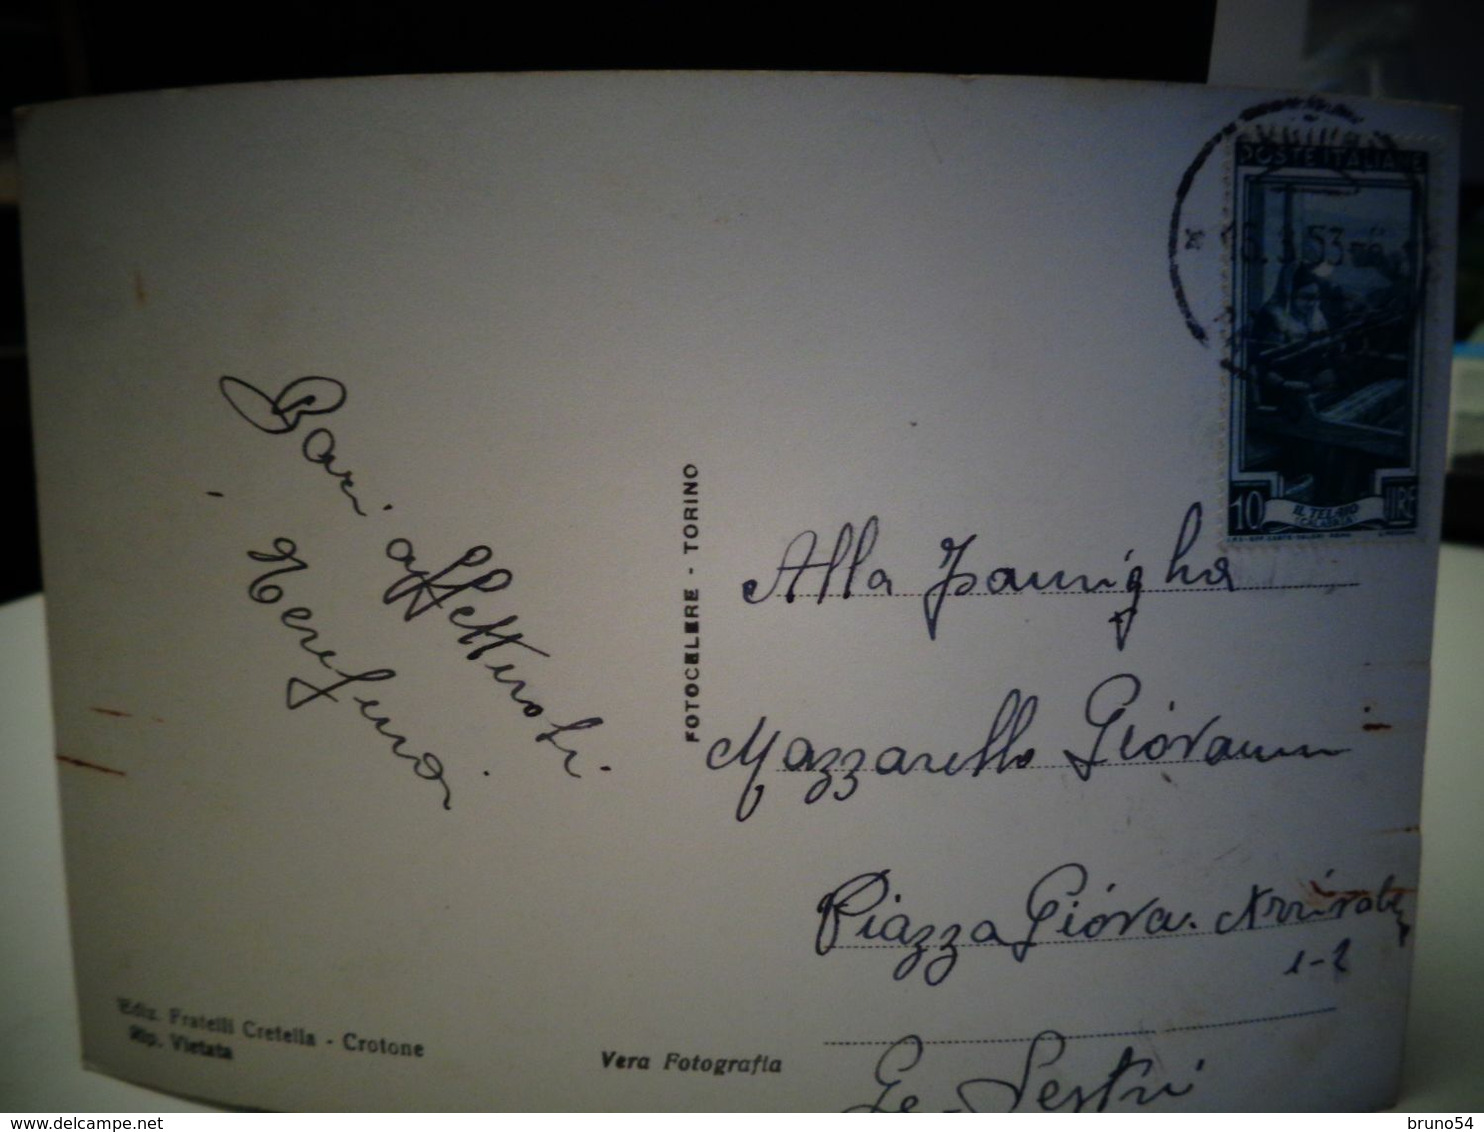 POSTE ITALIANE
53
10
LIRE
IL TELAIO
(CALABRIA)
Baci affettuosi
FOTOCELERE - TORINO
Alla Famiglia
Mazzarello Giovanni
Piazza Giova.
1-2
Ge-Sestri
Ediz. Fratelli Cretella - Crotone
Rip. Vietata
Vera Fotografia
bruno54